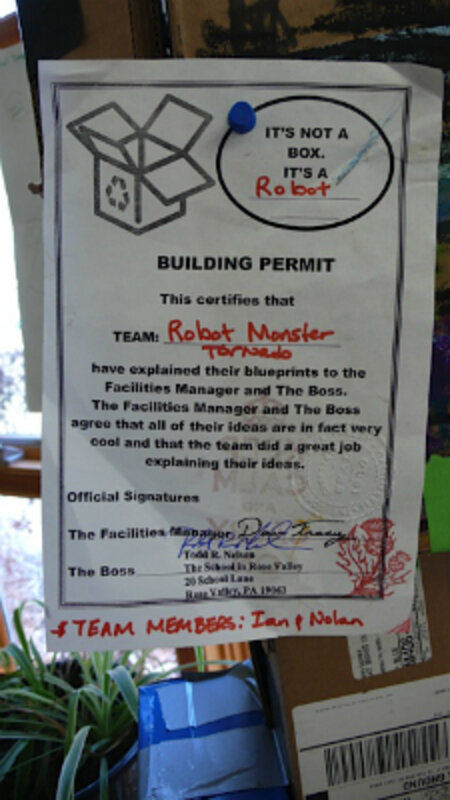 IT'S NOT A
BOX.
IT'S A
Robot
BUILDING PERMIT
This certifies that
TEAM: Robot Monster
TORNADO
have explained their blueprints to the
Facilities Manager and The Boss.
The Facilities Manager and The Boss
agree that all of their ideas are in fact very
cool and that the team did a great job
explaining their ideas.
Official Signatures
The Facilities Manager
Todd R. Nelson
The Boss The School in Rose Valley
20 School Lane
Rose Valley, PA 19063
TEAM MEMBERS: Ian & Nolan